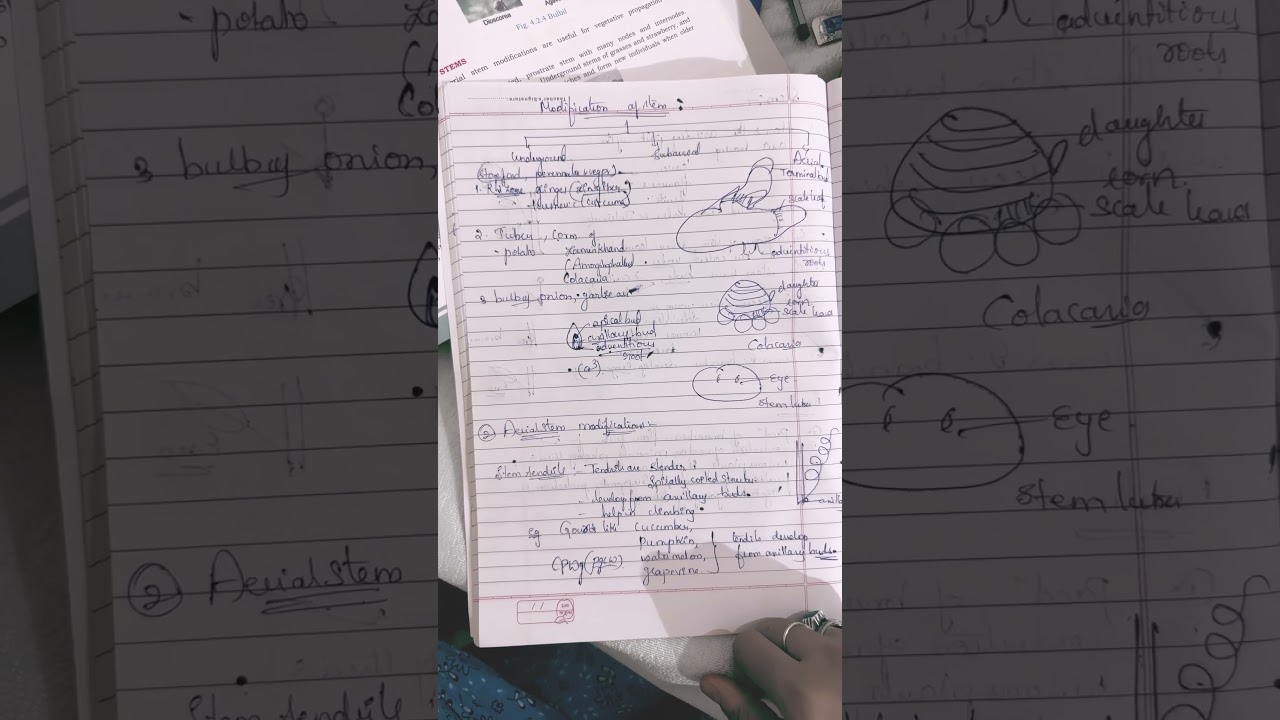 Dioscorea
Fig. 4.2.4 Bulbil
stem modifications are useful for vegetative propagation
STEMS
prostrate stem with many nodes and internodes.
Underground stems of grasses and strawberry, and
and form new individuals when older
Teacher's Signature
Modification of stem :
Underground
Subaerial
Aerial
Terminal bud
1. Rhizome, ginger (zinziber)
(curcuma)
scale leaf
2. Tuber, Corm of
- potato
Zaminkhand
Colacaria
adventitious
roots
3 bulby onion, garlic
daughter
corm
scale
apical bud
axillary bud
adventitious
root
Colacaria
(a³)
Eye
Stem tuber
② Aerial stem modifications
Stem tendrils :- Tendrils are slender,
spirally coiled
- develop from axillary buds.
- help in climbing.
Eg Gourds like cucumber,
pumpkin,
watrimelon,
grapevine
tendrils develop
from axillary buds.
(pgcw)
potato
3 bulby onion,
② Aerial stem
Stem tendrils
adventitious
roots
daughter
corm
scale
Colacaria
Eye
Stem tuber